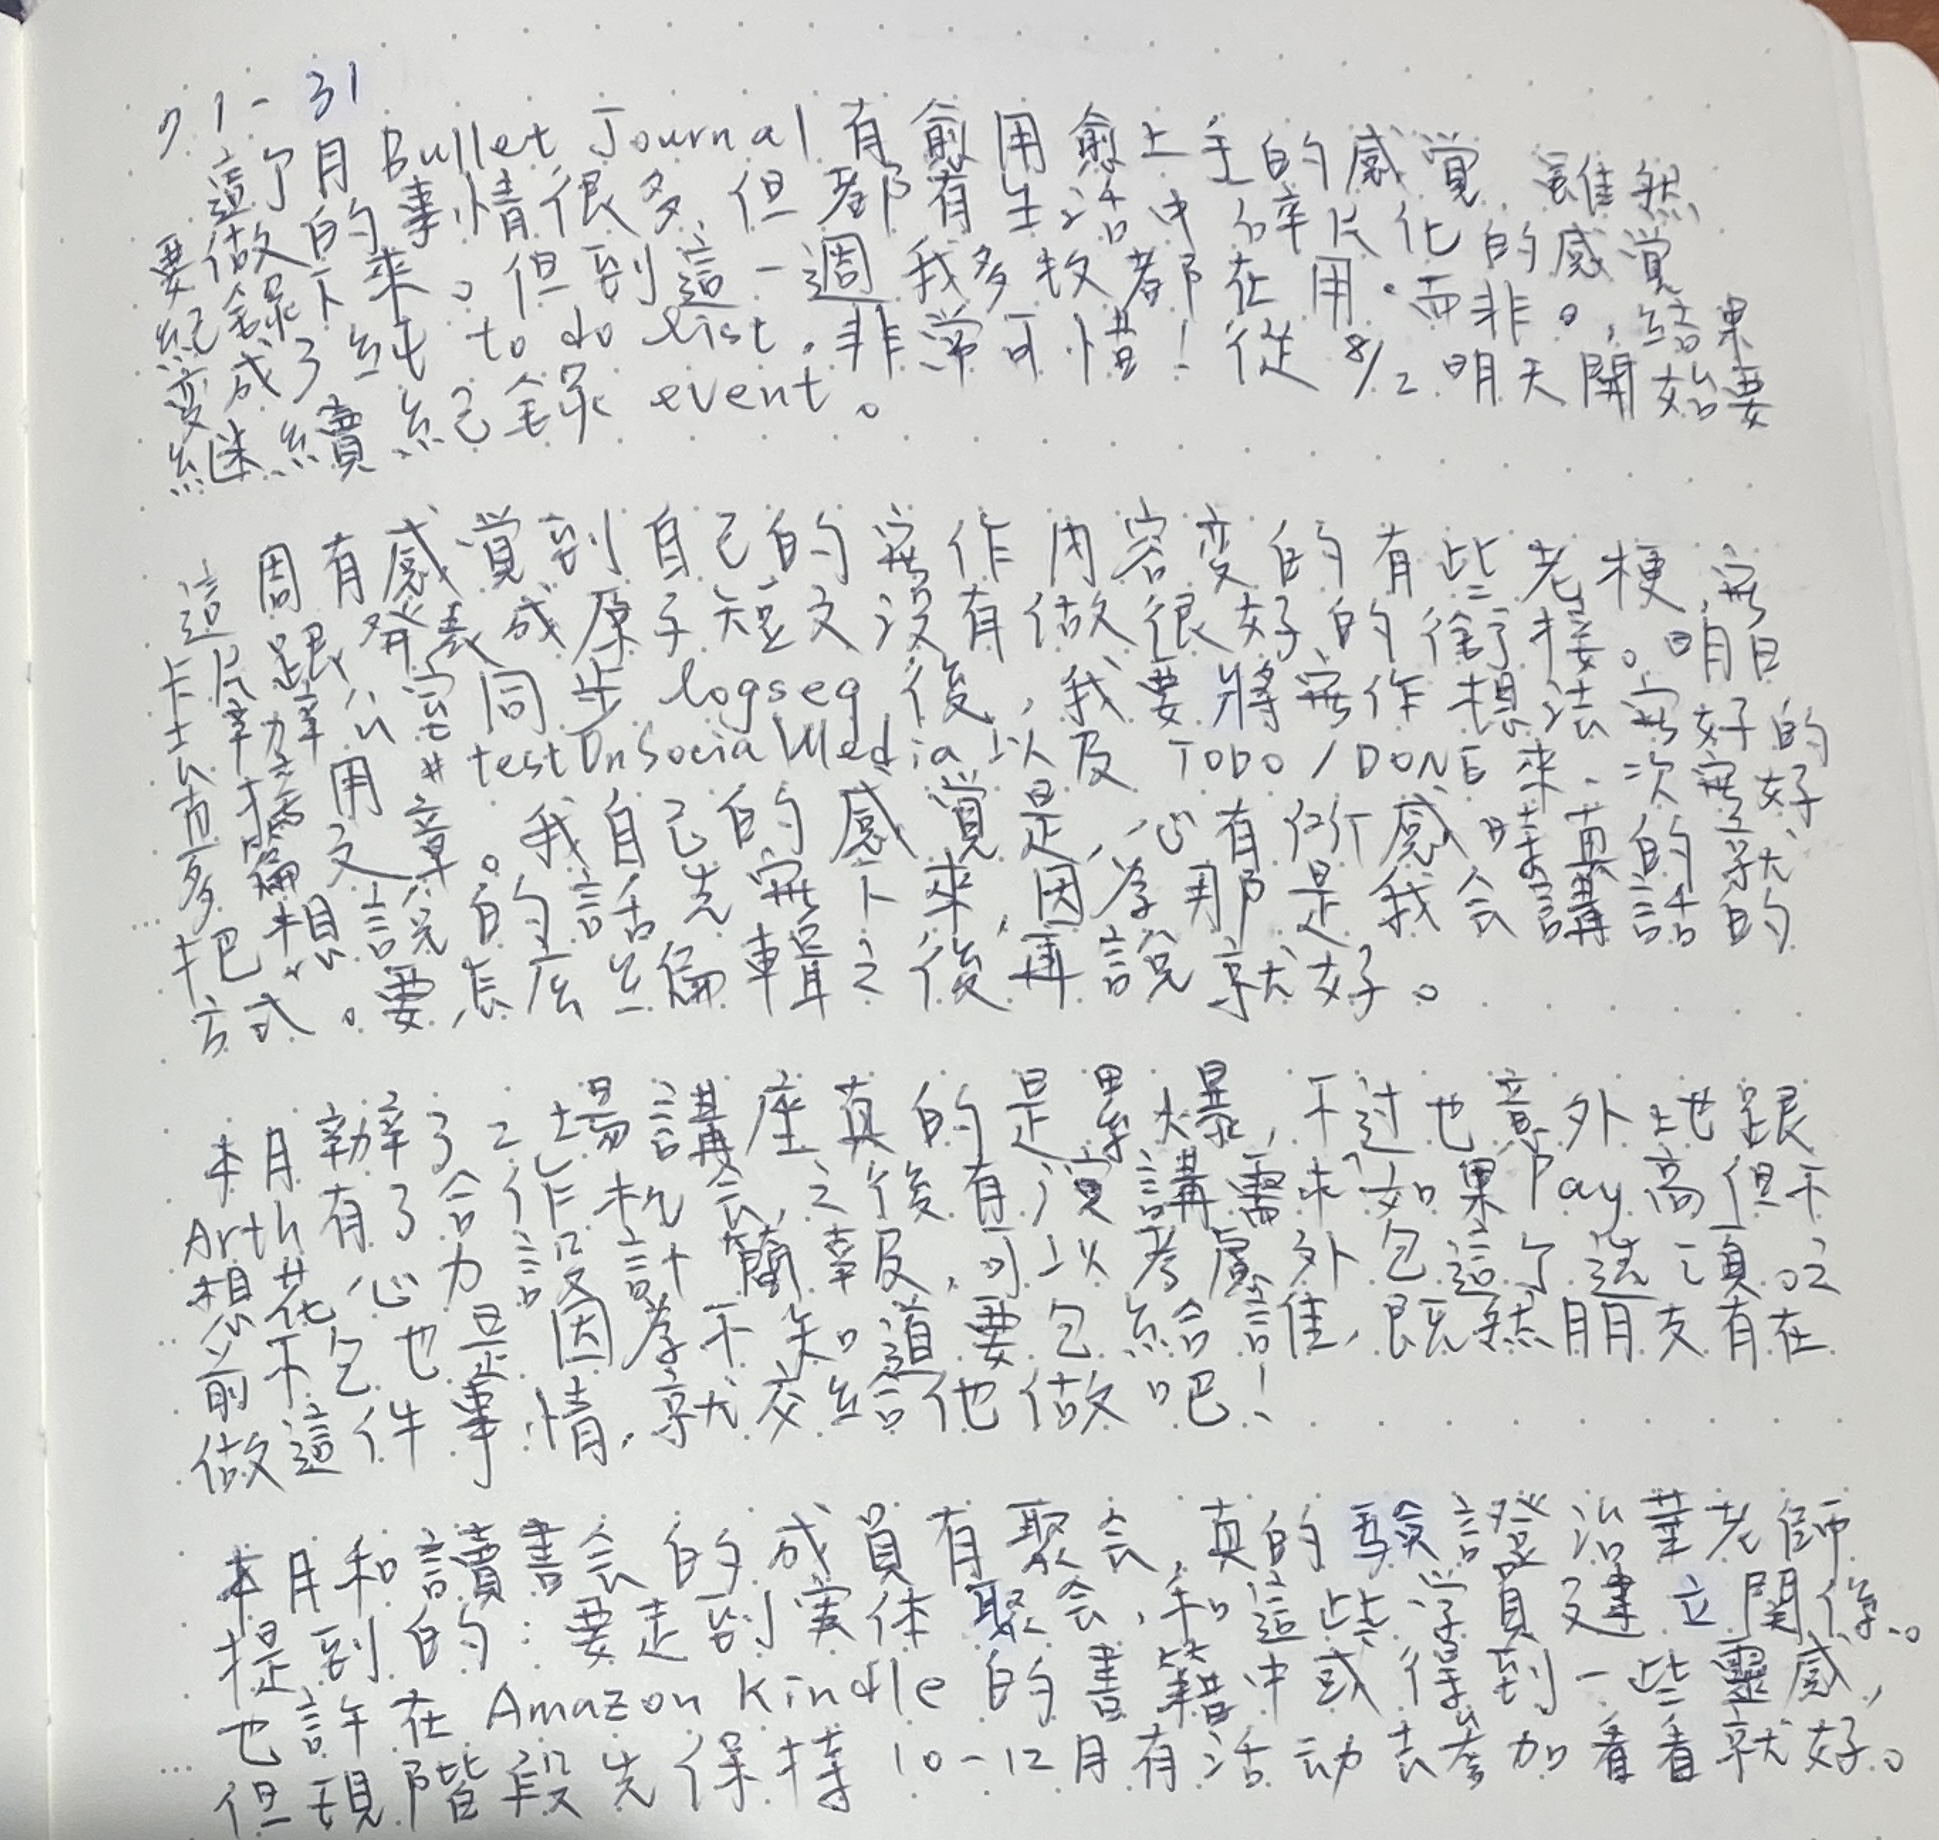 7/1-31
這个月Bullet Journal有愈用愈上手的感覺,雖然
要做的事情很多,但都有生活中碎片化的感覺
紀錄下來。但到這一週我多数都在用。而非。,結果
变成了純 to do list,非常可惜!從8/2明天開始要
継續紀錄 event。
這周有感覺到自己的寫作内容变的有些老梗,寫
卡片跟發表成原子短文沒有做很好的銜接。明日
去辦公室同步logseq後,我要將寫作想法寫好的
用#testOnSocialMedia以及TODO/DONE來一次寫好
多篇文章。我自己的感覺是,心有所感時真的就
把想説的話先寫下來,因為那是我会講話的
方式。要怎麼編輯之後再說就好。
本月辦了2場講座真的是累爆,不过也意外地跟
Arth有了合作机会,之後有演講需求如果Pay高但不
想花心力設計簡報,可以考慮外包這个選項。以
前不包也是因為不知道要包給誰,既然朋友有在
做這件事情,就交給他做吧!
本月和讀書会的成員有聚会,真的驗證治華老師
提到的:要走到実体聚会,和這些学員建立関係。
也許在Amazon Kindle的書籍中或得到一些靈感,
但現階段先保持10-12月有活动去參加看看就好。